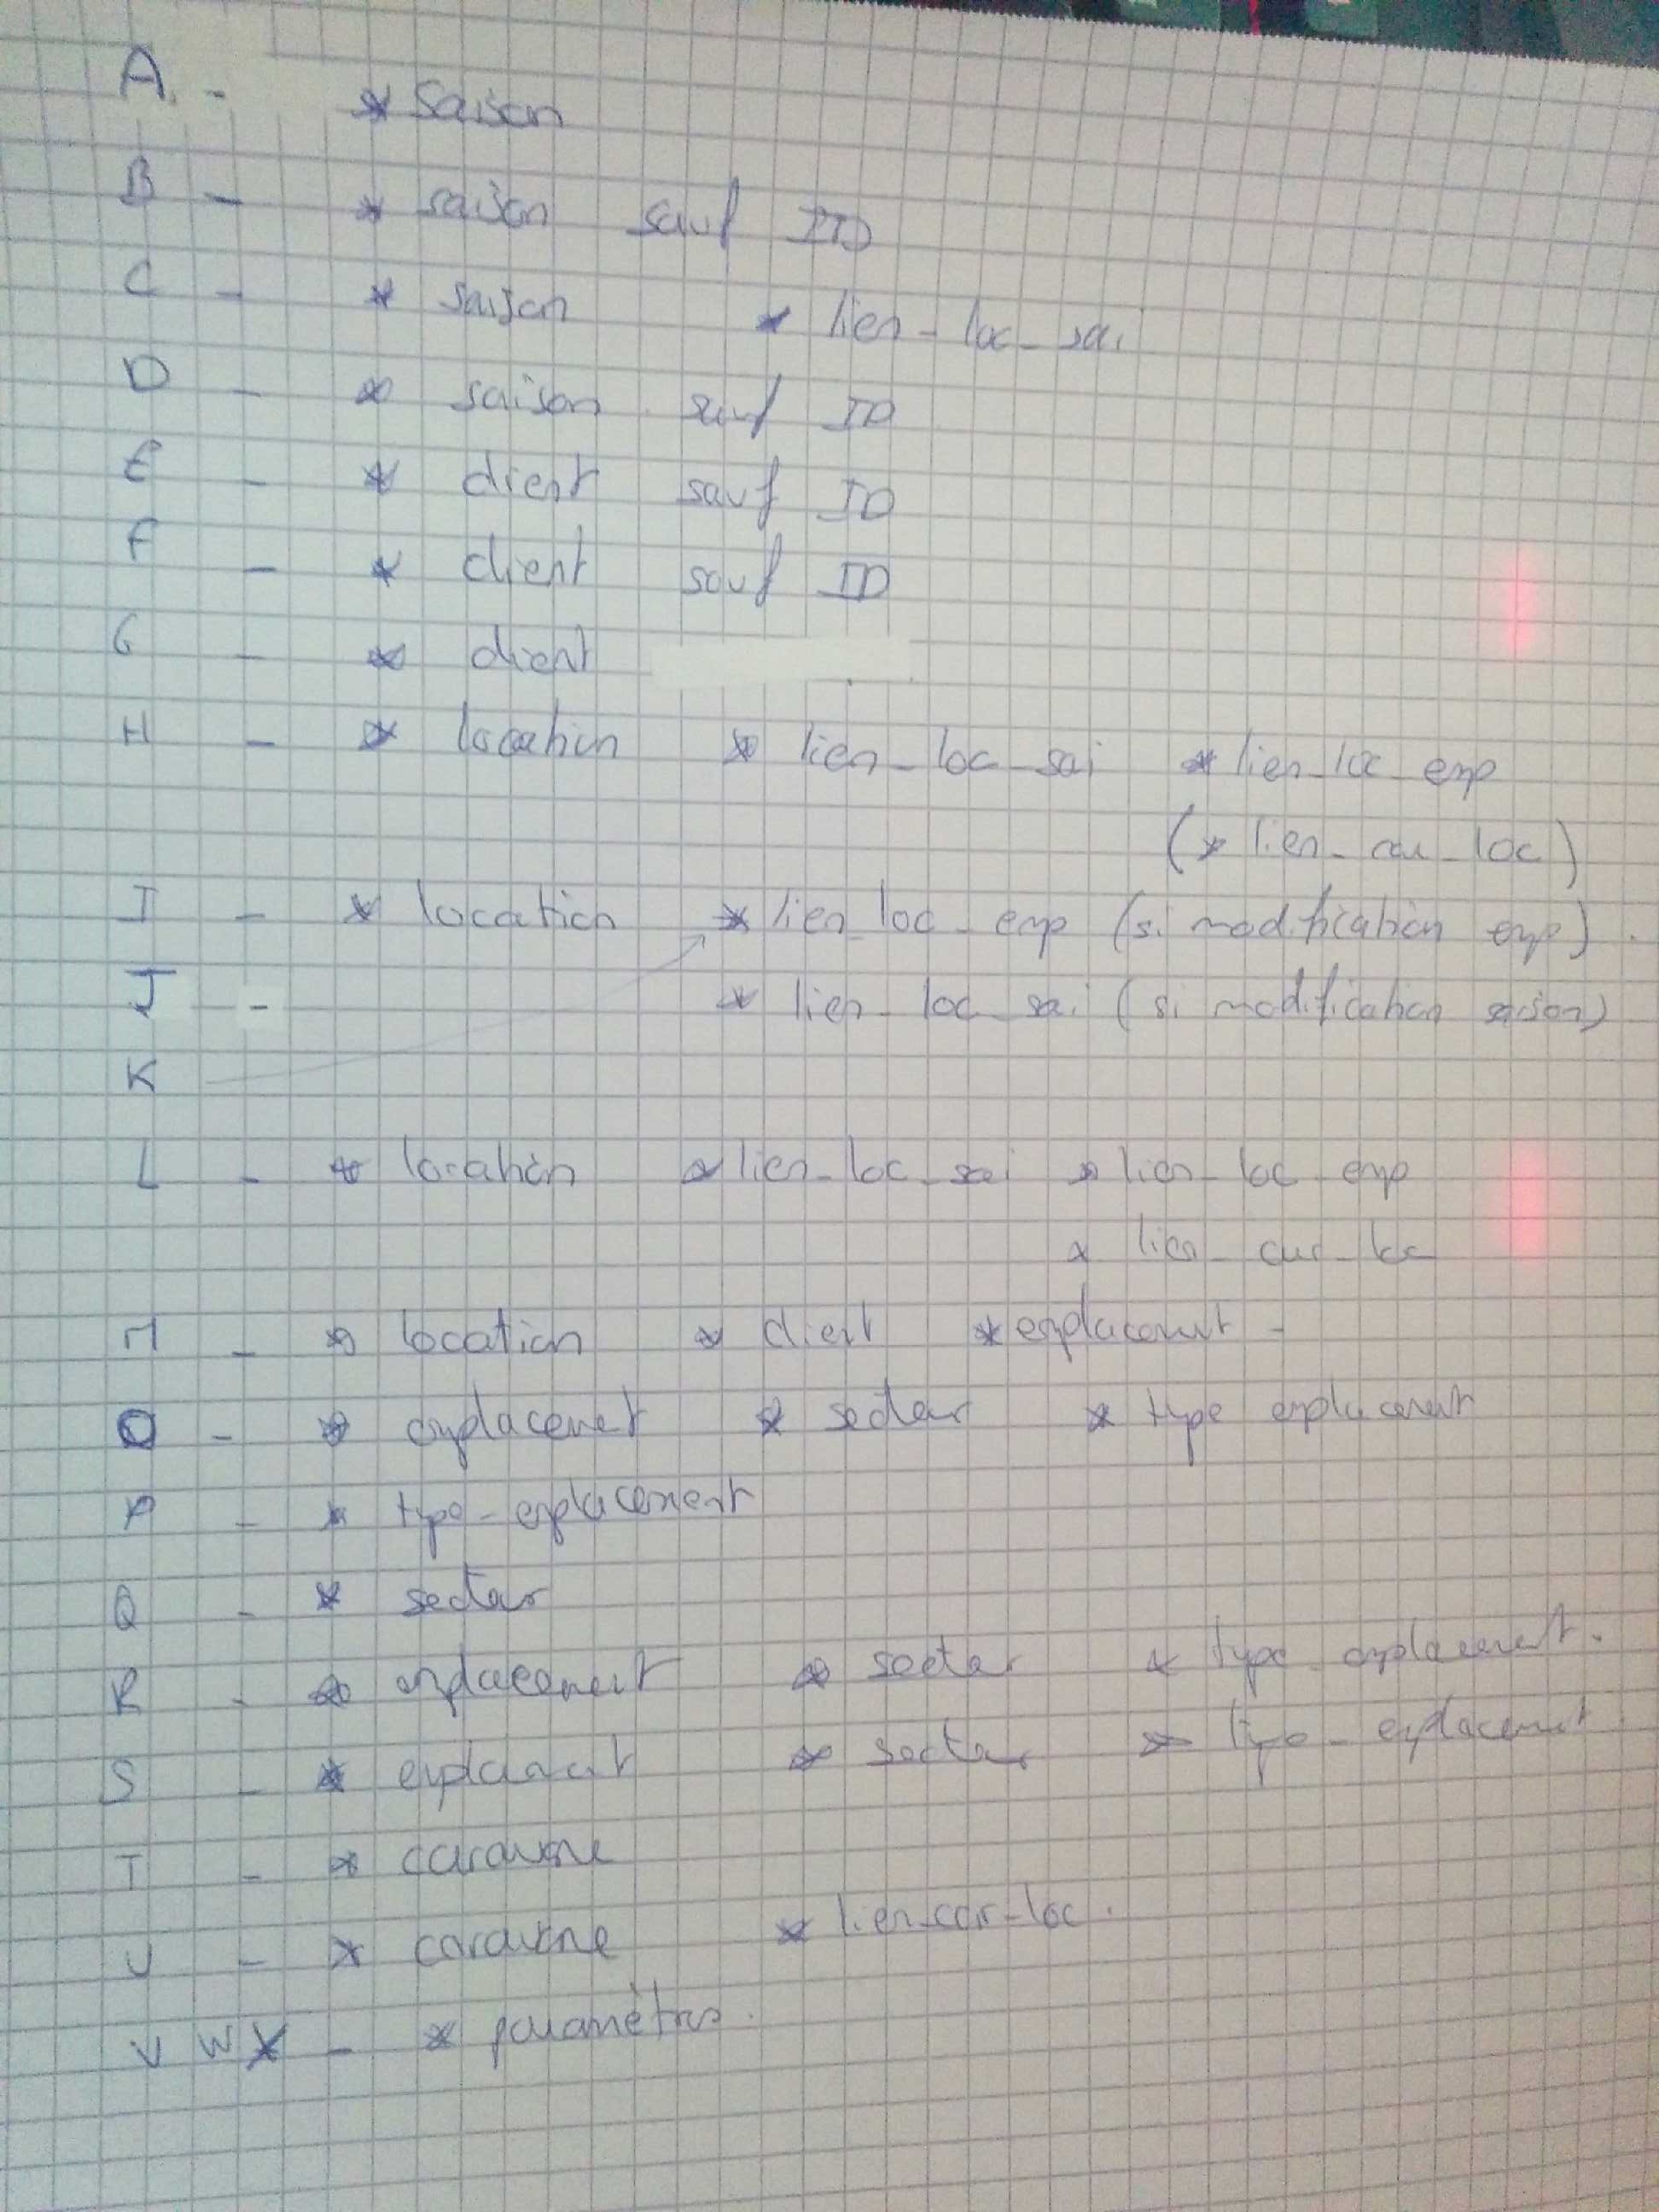 A. - * saison
B - * saison sauf ID
C - * saison * lien_loc_sai
D - * saison sauf ID
E - * client sauf ID
F - * client sauf ID
G - * client
H - * location * lien_loc_sai * lien_loc_emp
(* lien_car_loc)
I - * location * lien_loc_emp (si modification emp).
J - * lien_loc_sai (si modification saison)
K
L - * location * lien_loc_sai * lien_loc_emp
* lien_car_loc
M - * location * client * emplacement -
O - * emplacement * secteur * type emplacement
P - * type_emplacement
Q - * secteur
R - * emplacement * secteur * type_emplacement.
S - * emplacement * secteur * type_emplacement
T - * caravane
U - * caravane * lien_car_loc.
V W X - * paramètres.